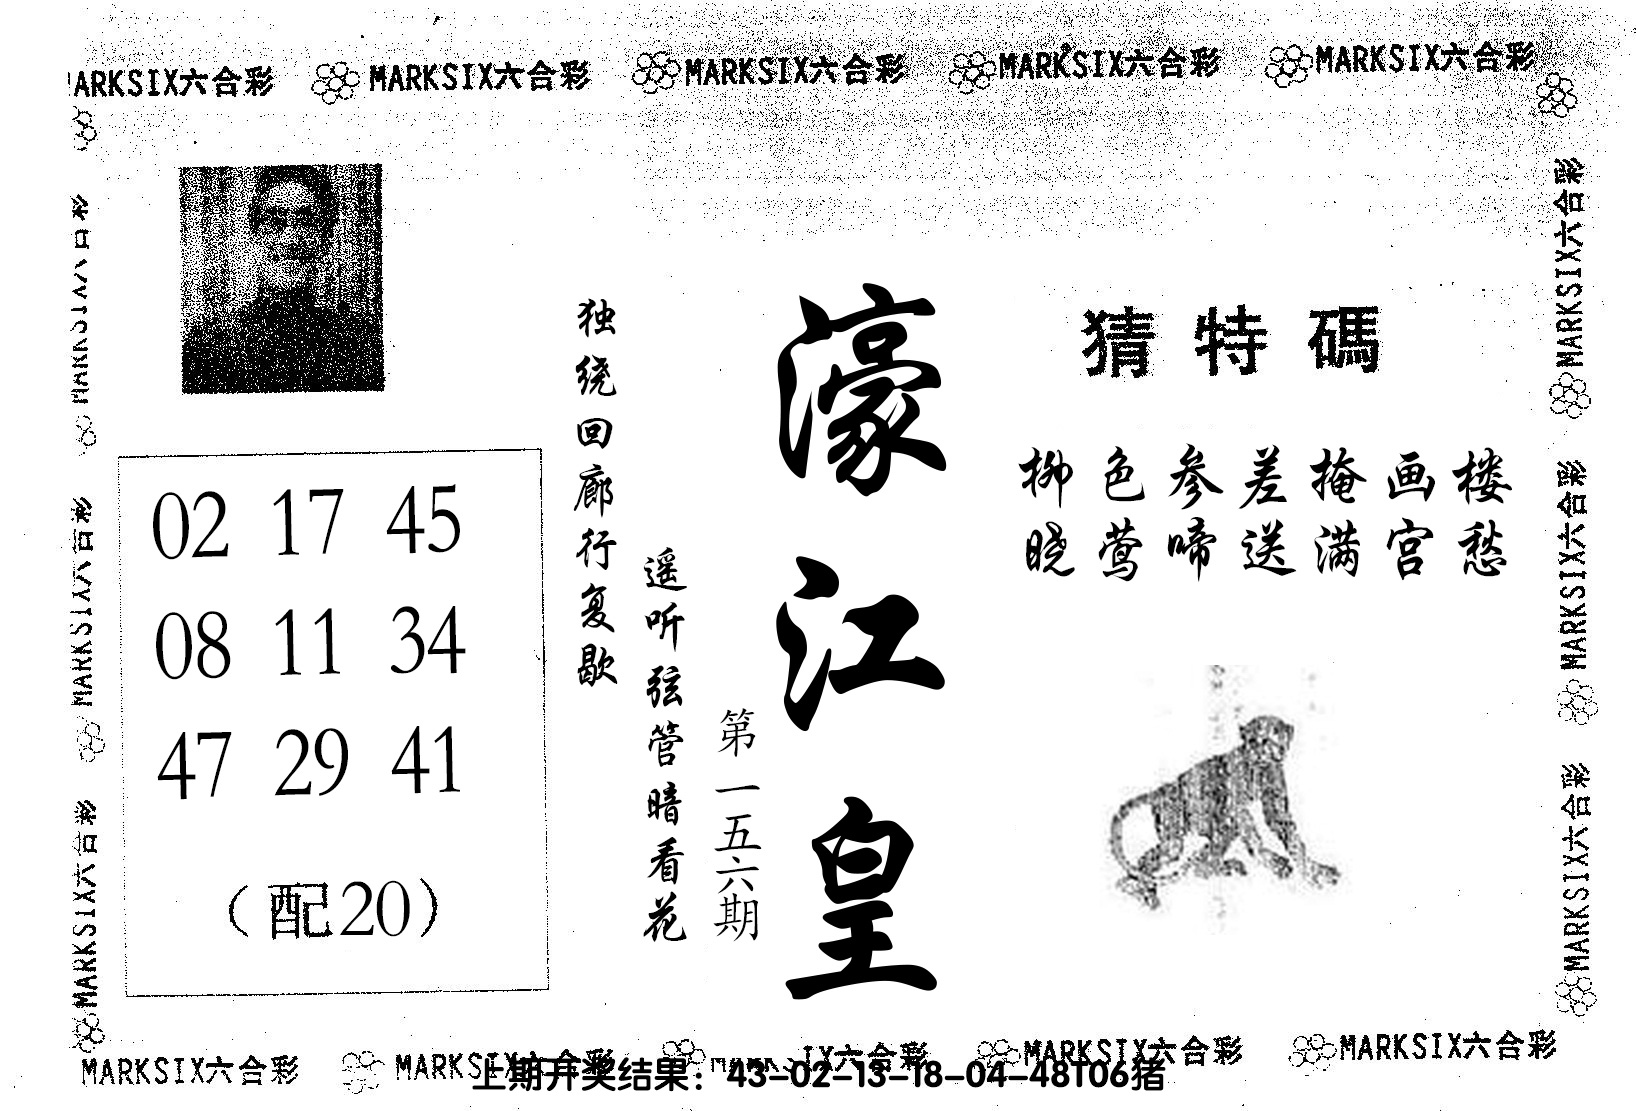 MARKSIX六合彩 MARKSIX六合彩 MARKSIX六合彩 MARKSIX六合彩 MARKSIX六合彩
MARKSIX六合彩
MARKSIX六合彩
MARKSIX六合彩
02 17 45
08 11 34
47 29 41
(配20)
独绕回廊行复歇
遥听弦管暗看花
第一五六期
濠江皇
猜特碼
柳色参差掩画楼
晓莺啼送满宫愁
MARKSIX六合彩
MARKSIX六合彩
MARKSIX六合彩
MARKSIX六合彩 MARKSIX六合彩 IX六合彩 MARKSIX六合彩 MARKSIX六合彩
上期开奖结果：43-02-13-18-04-48T06猪